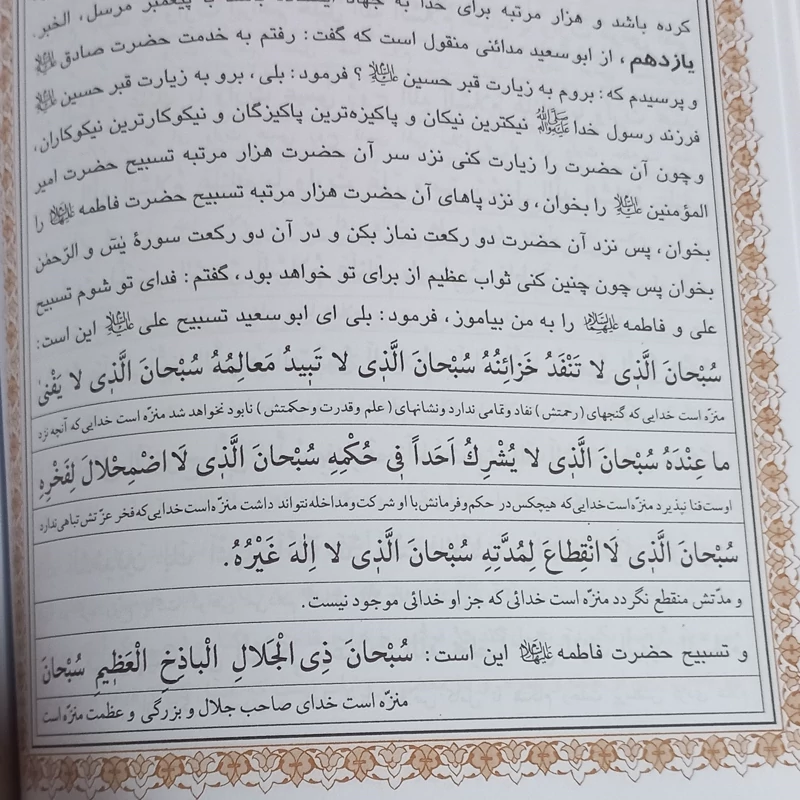 کرده باشد و هزار مرتبه برای خدا به جهاد ایستاده باشد با پیغمبر مرسل، الخبر.
یازدهم، از ابو سعید مدائنی منقول است که گفت: رفتم به خدمت حضرت صادق علیه السلام
و پرسیدم که: بروم به زیارت قبر حسین علیه السلام؟ فرمود: بلی، برو به زیارت قبر حسین علیه السلام
فرزند رسول خدا ﷺ نیکترین نیکان و پاکیزه‌ترین پاکیزگان و نیکوکارترین نیکوکاران،
و چون آن حضرت را زیارت کنی نزد سر آن حضرت هزار مرتبه تسبیح حضرت امیر
المؤمنین علیه السلام را بخوان، و نزد پاهای آن حضرت هزار مرتبه تسبیح حضرت فاطمه علیها السلام را
بخوان، پس نزد آن حضرت دو رکعت نماز بکن و در آن دو رکعت سورهٔ یٰسٓ و الرّحمٰن
بخوان پس چون چنین کنی ثواب عظیم از برای تو خواهد بود، گفتم: فدای تو شوم تسبیح
علی و فاطمه علیهما السلام را به من بیاموز، فرمود: بلی ای ابو سعید تسبیح علی علیه السلام این است:
سُبْحانَ الَّذِی لا تَنْفَدُ خَزائِنُهُ سُبْحانَ الَّذِی لا تَبِیدُ مَعالِمُهُ سُبْحانَ الَّذِی لا یَفْنیٰ
منزّه است خدایی که گنجهای (رحمتش) نفاد وتمامی ندارد ونشانهای (علم وقدرت وحکمتش) نابود نخواهد شد منزّه است خدایی که آنچه نزد
ما عِنْدَهُ سُبْحانَ الَّذِی لا یُشْرِكُ اَحَداً فِی حُكْمِهِ سُبْحانَ الَّذِی لَا اضْمِحْلالَ لِفَخْرِهِ
اوست فنا نپذیرد منزّه است خدایی که هیچکس در حکم وفرمانش با او شرکت ومداخله نتواند داشت منزّه است خدایی که فخر عزّتش تباهی ندارد
سُبْحانَ الَّذِی لَا انْقِطاعَ لِمُدَّتِهِ سُبْحانَ الَّذِی لا اِلٰهَ غَیْرُهُ.
و مدّتش منقطع نگردد منزّه است خدائی که جز او خدائی موجود نیست.
و تسبیح حضرت فاطمه علیها السلام این است: سُبْحانَ ذِی الْجَلالِ الْباذِخِ الْعَظِیمِ سُبْحانَ
منزّه است خدای صاحب جلال و بزرگی و عظمت منزّه است